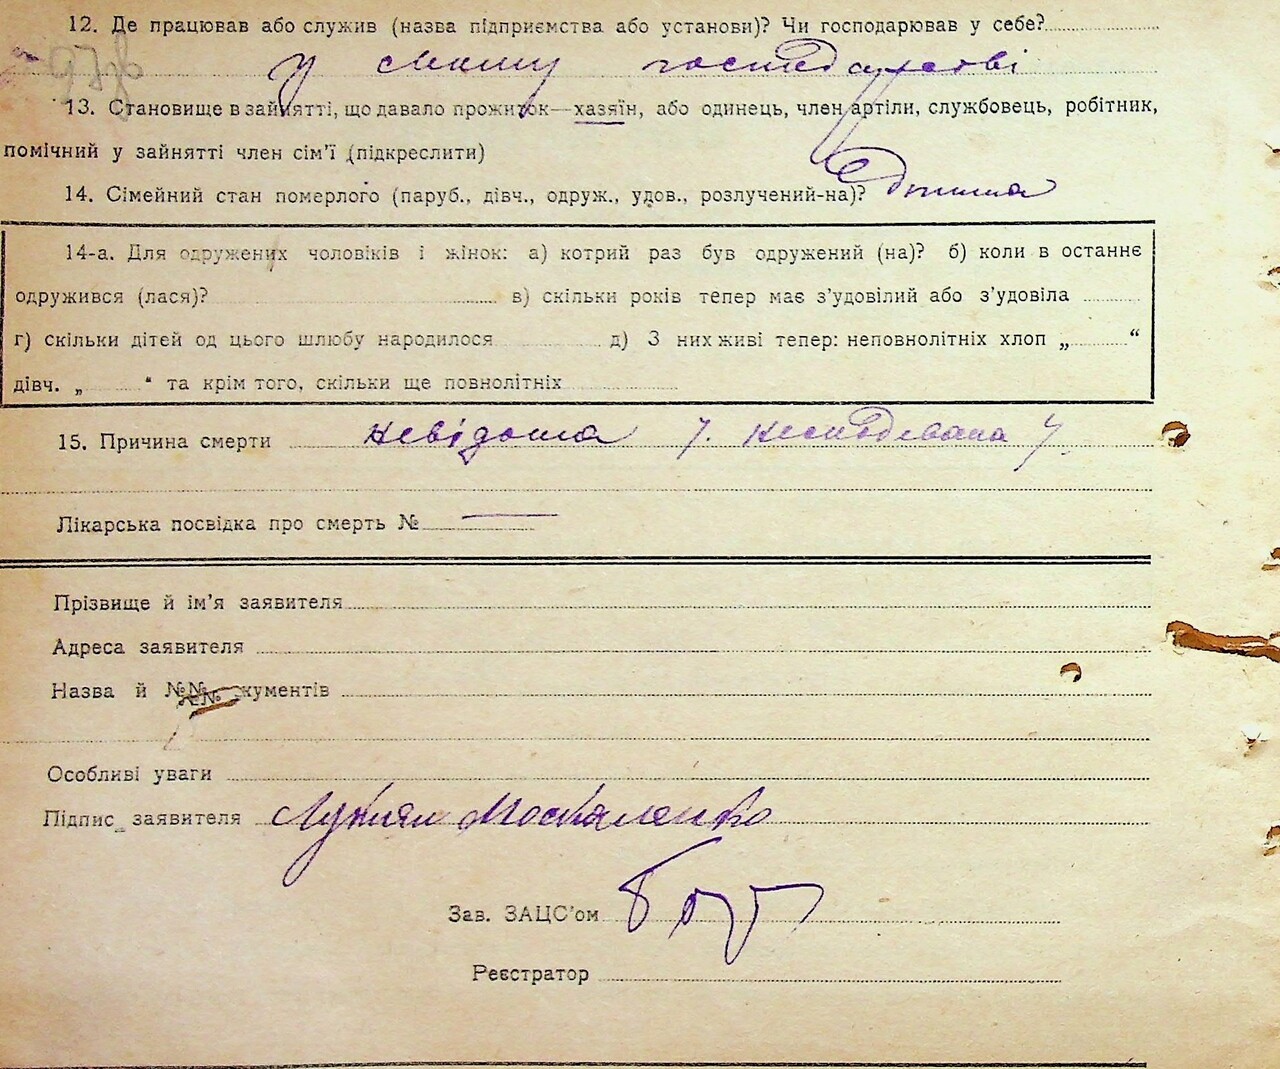 12. Де працював або служив (назва підприємства або установи)? Чи господарював у себе?
у своему господарстві
13. Становище в зайнятті, що давало прожиток—хазяїн, або одинець, член артіли, службовець, робітник,
помічний у зайнятті член сім'ї (підкреслити)
14. Сімейний стан померлого (паруб., дівч., одруж., удов., розлучений-на)?
14-а. Для одружених чоловіків і жінок: а) котрий раз був одружений (на)? б) коли в останнє
одружився (лася)? в) скільки років тепер має з'удовілий або з'удовіла
г) скільки дітей од цього шлюбу народилося д) З них живі тепер: неповнолітніх хлоп „ “
дівч. „ “ та крім того, скільки ще повнолітніх
15. Причина смерти невідома /. несподівана /.
Лікарська посвідка про смерть № —
Прізвище й ім'я заявителя
Адреса заявителя
Назва й №№ кументів
Особливі уваги
Підпис заявителя Лукіян Москаленко
Зав. ЗАЦС'ом
Реєстратор